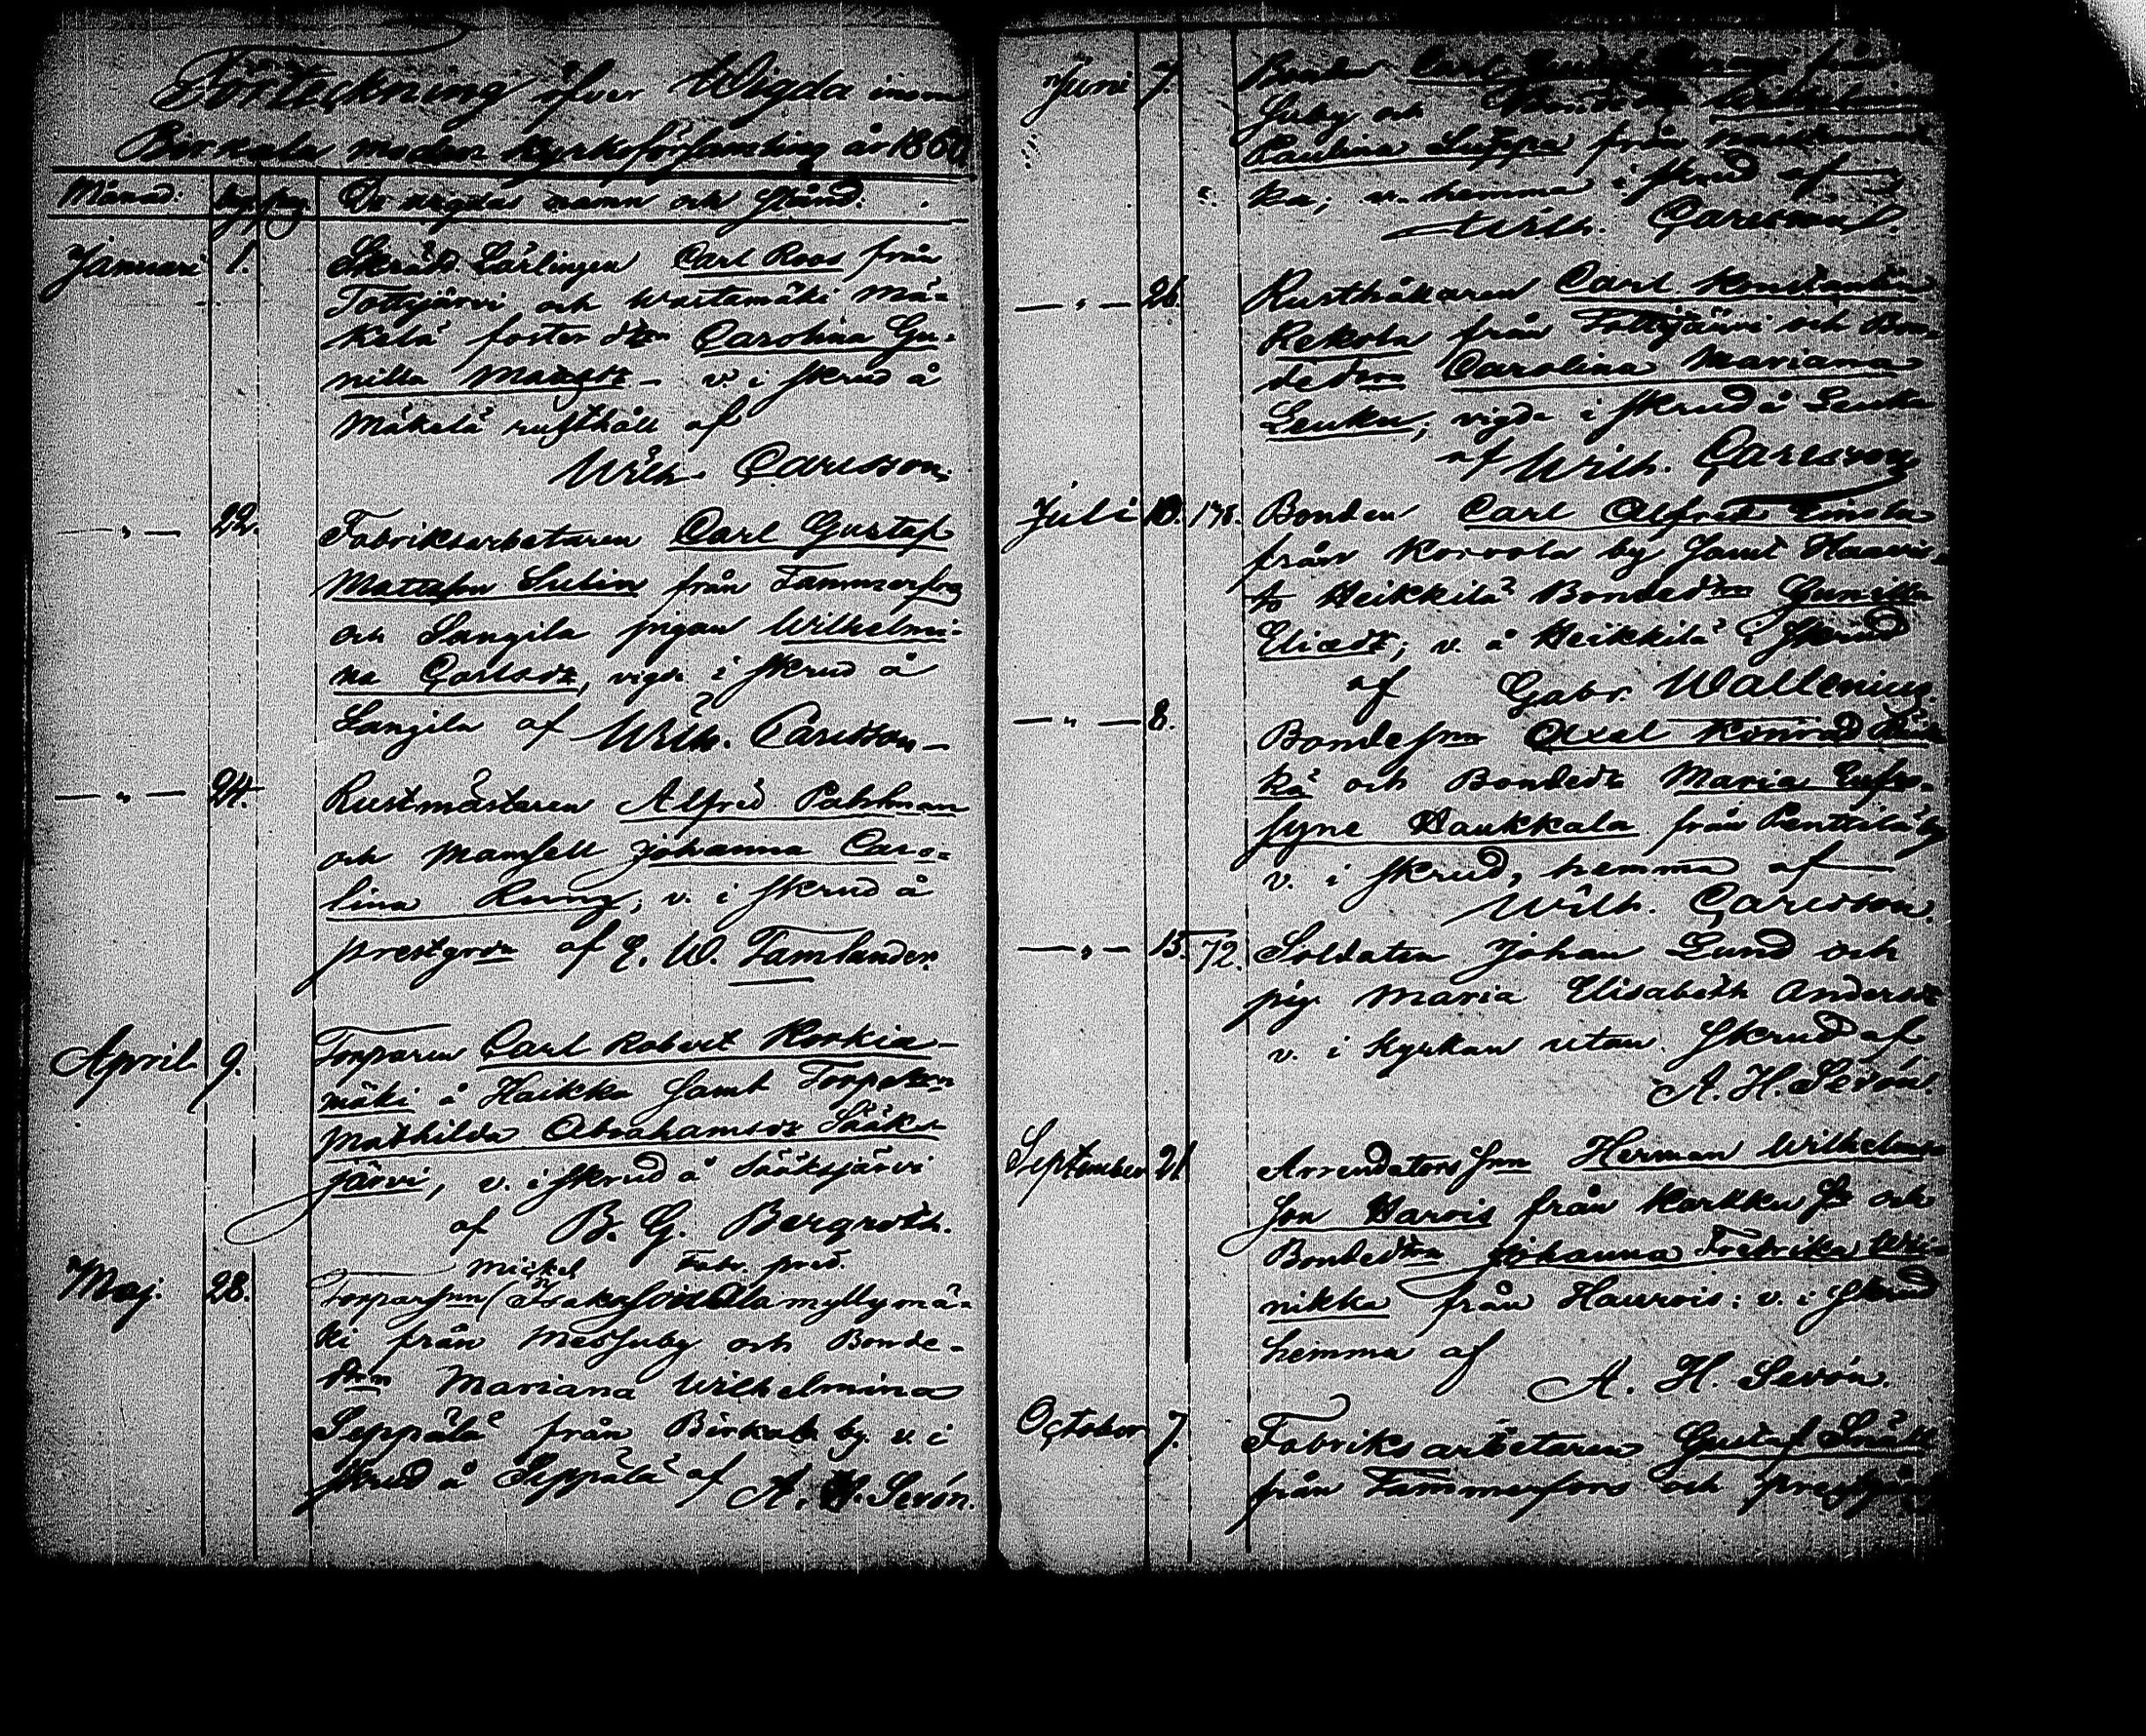 Förteckning öfver Wigda inom
Birkala moder kyrkoförsamling år 1860.
Månad. dag pag De vigdas namn och stånd.
Januari 1. Skrädd. Lärlingen Carl Roos från
Tottijärvi och Wastamäki Mä-
kelä foster dtrn Carolina Gu-
nilla Magsdr - v. i skrud å
Mäkelä rusthåll af
Wilh. Carlsson.
— " — 22. Fabriksarbetaren Carl Gustaf
Mattsson Sulin från Tammerfors
och Langila pigan Wilhelmi-
na Carlsdr, vigde i skrud å
Langila af Wilh. Carlsson -
— " — 24. Rustmästaren Alfred Pahlman
och Mamsell Johanna Caro-
lina Rung; v. i skrud å
prestgrdn af E. W. Tamlander.
April 9. Torparen Carl Robert Korkia-
mäki å Haikka samt Torpdtrn
Mathilda Abrahamsdr Sääks-
järvi, v. i skrud å Sääksjärvi
af B. G. Bergroth.
Michel Fabr. pred.
Maj. 28. Torparsnn (Isaksson Alamyllymä-
ki från Medjuby och Bonde-
dtrn Mariana Wilhelmina
Seppälä från Birkala by. v. i
skrud å Seppälä af A. H. Sevón.
Juni 7. Bonden Carl Gustaf från
Juby och Wilhelmina
Paulina från
ka; v. hemma i skrud af
Wilh. Carlsson.
— " — 26. Rusthållaren Carl Konstantin
Rekola från Tottijärvi och Bon-
dedtrn Carolina Mariana
Leuku; vigde i skrud å Leuku
af Wilh. Carlsson
Juli 10. 178. Bonden Carl Alfred Einola
från Korvola by samt Haavis-
to Heikkilä Bondedtrn Gunilla
Eliædr; v. å Heikkilä i skrud
af Gabr. Wallenius.
— " — 8. Bondesnn Axel Konrad
kä och Bondedtr Maria Eufro-
syne Haukkala från Penttilä by
v. i skrud, hemma af
Wilh. Carlsson.
— " — 15. 72. Soldaten Johan Lund och
pig. Maria Elisabeth Andersdr
v. i kyrkan utan skrud af
A. H. Sevón.
September 21 Arrendators snn Herman Wilhelms-
son Harvis från Karkku s:n och
Bondedtrn Johanna Fredrika Wei-
nikka från Haurois: v. i skrud
hemma af
A. H. Sevón.
October 7. Fabriks arbetaren Gustaf
från Tammerfors och